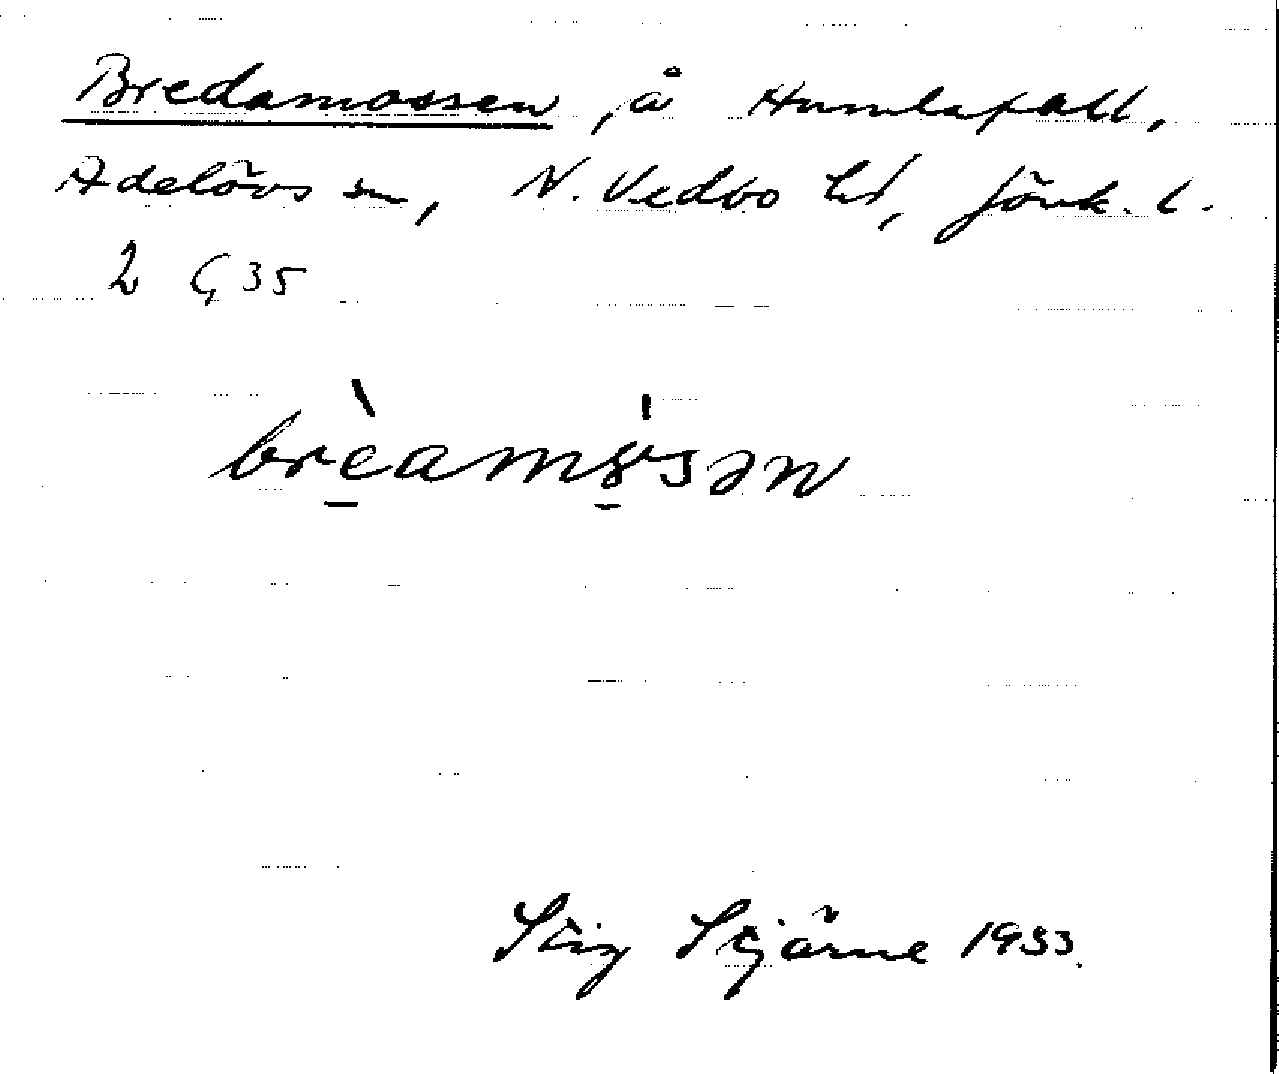 Bredamossen, å Humlafall,
Adelövs sn, N. Vedbo hd, Jönk. l.
2 G 35
brèamósən
Stig Stjärne 1953.